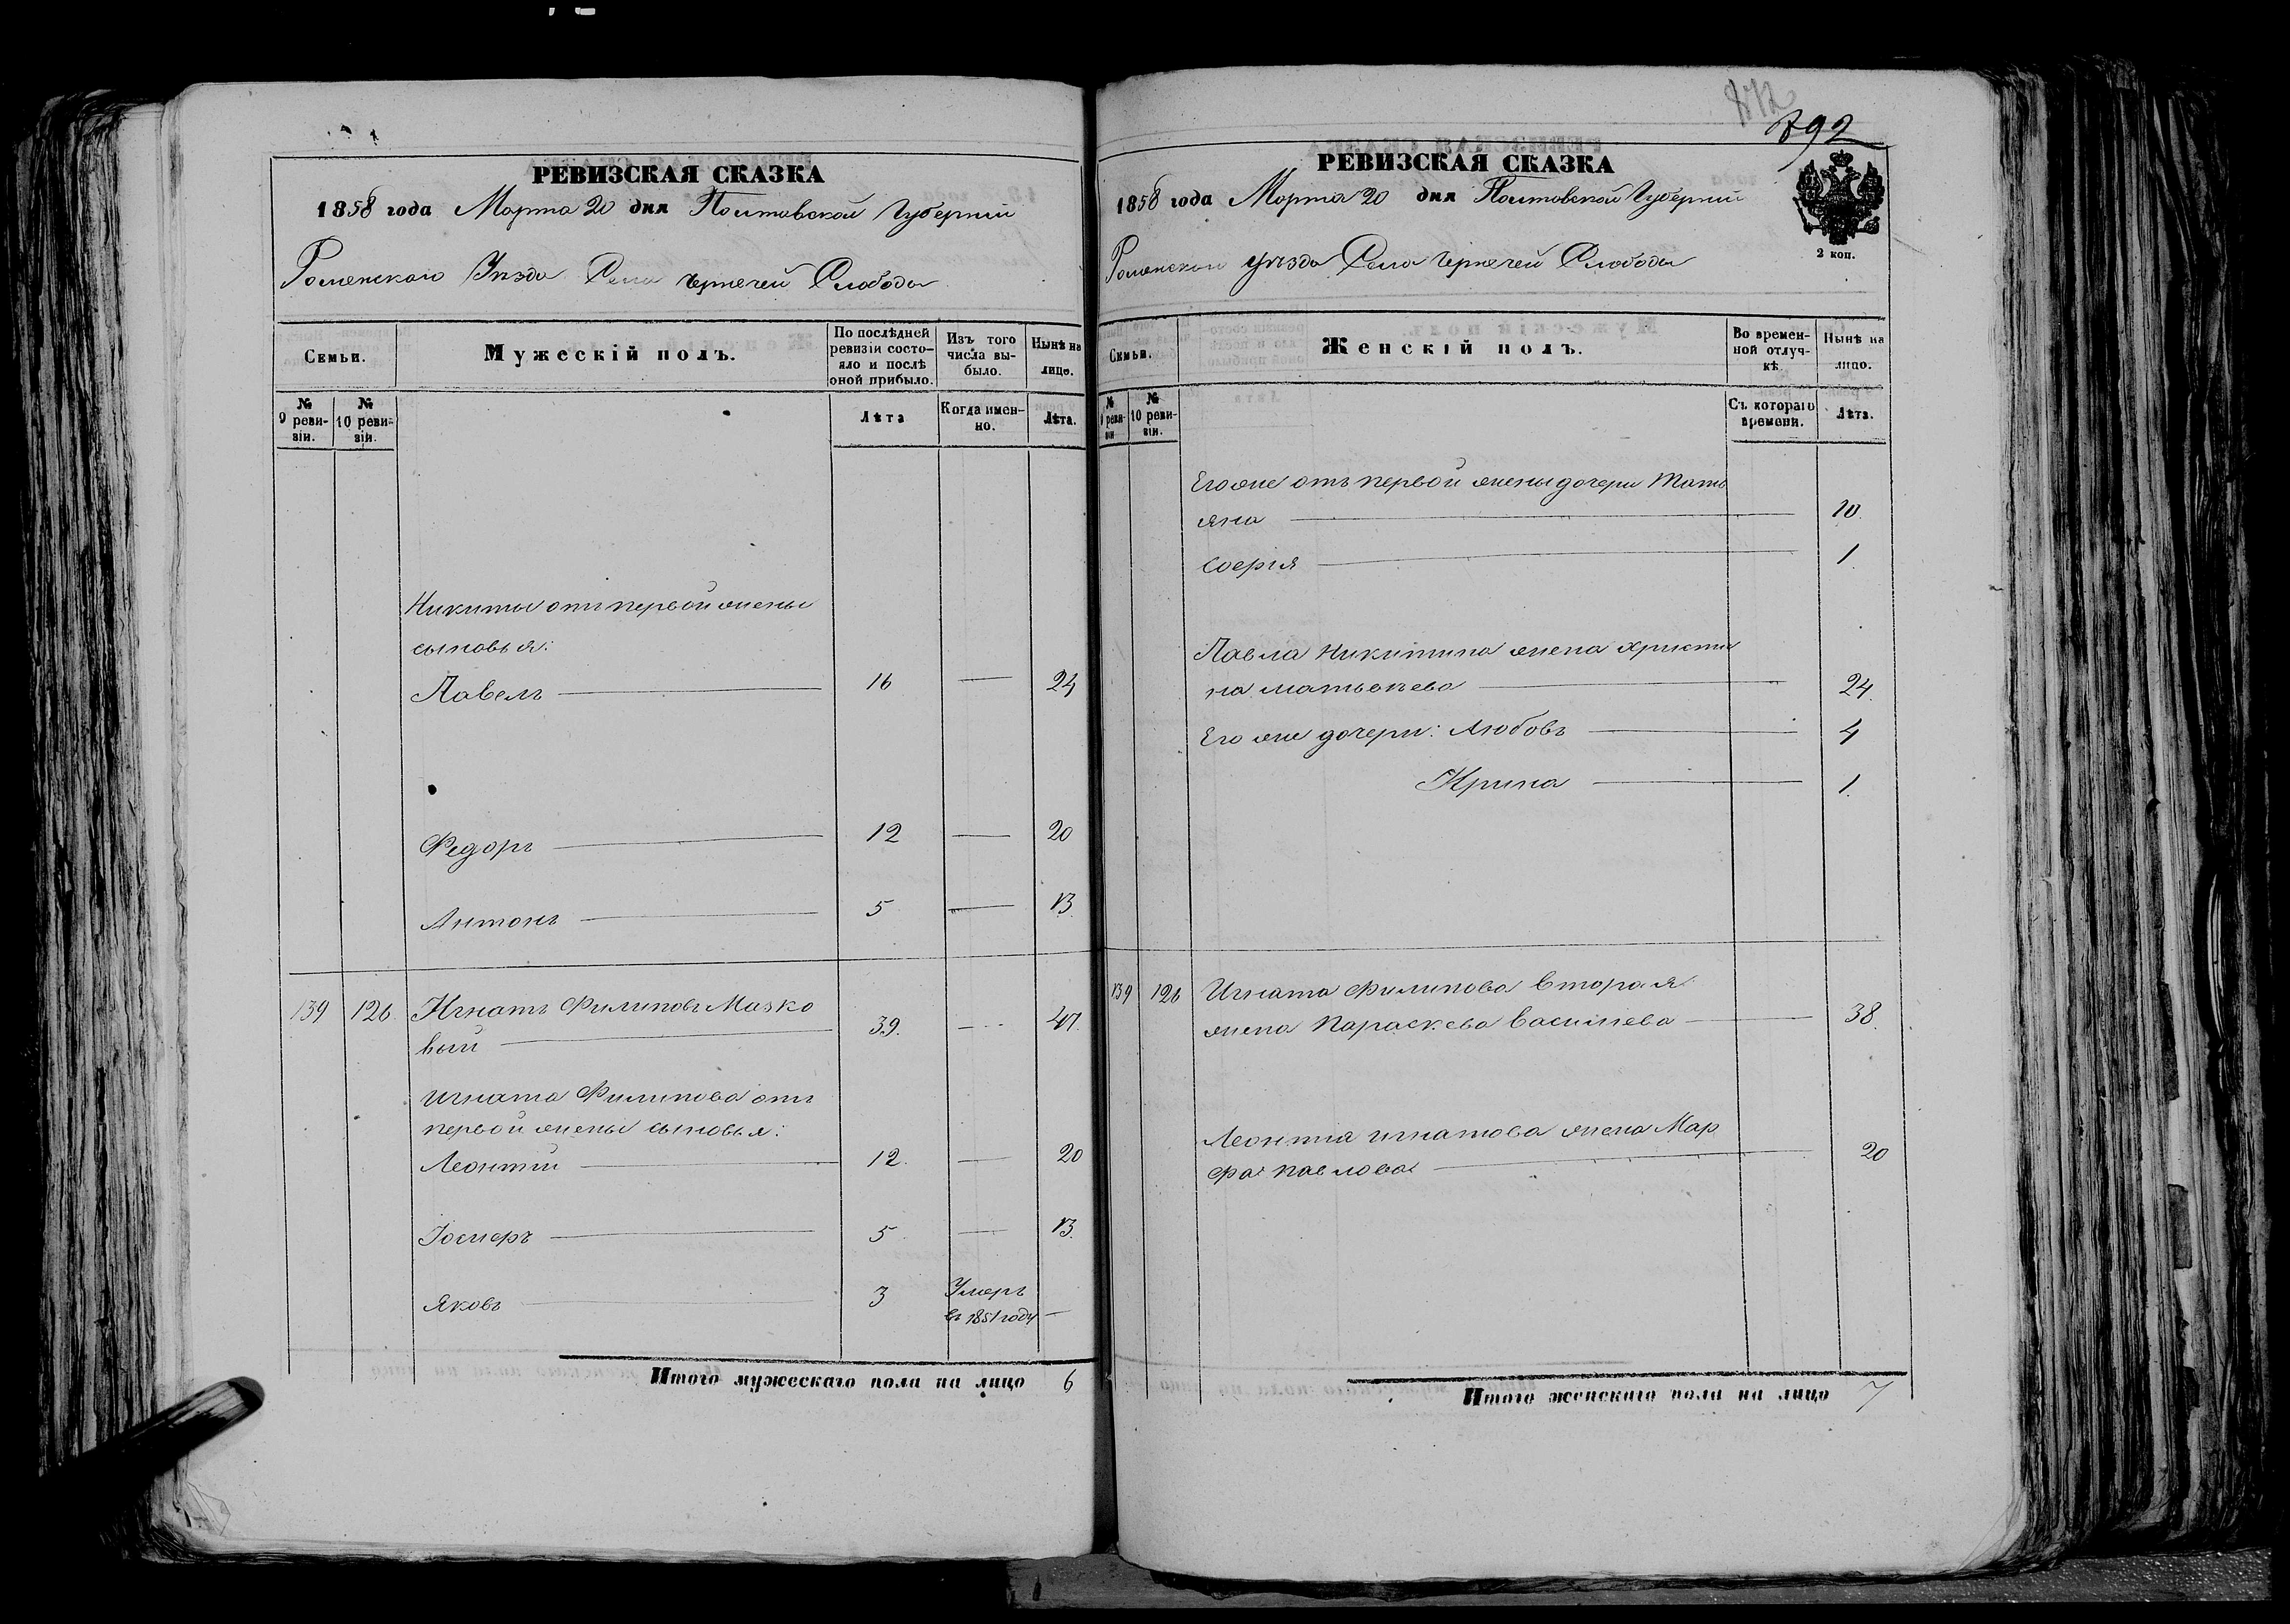 РЕВИЗСКАЯ СКАЗКА
1858 года Марта 20 дня Полтавской Губерніи
Роменского Уѣзда Села Чернечей Слободы
Семьи.
Мужескій полъ.
По послѣдней ревизіи состо-
яло и послѣ оной прибыло.
Изъ того числа вы-
было.
Нынѣ на лицо.
№ 9 реви-
зіи.
№ 10 реви-
зіи.
Лѣта
Когда имен-
но.
Лѣта.
Никиты отъ первой жены
сыновья:
Павелъ 16 — 24
Федоръ 12 — 20
Антонъ 5 — 13
139 126 Игнатъ Филиповъ Мазко
вый 39. — 47.
Игната Филипова отъ
первой жены сыновья:
Леонтій 12. — 20
Іосифъ 5 — 13.
Яковъ 3 Умеръ
въ 1851 году —
Итого мужескаго пола на лицо 6
872
792
РЕВИЗСКАЯ СКАЗКА
1858 года Марта 20 дня Полтавской Губерніи
Роменского уѣзда Села Чернечей Слободы
2 коп.
Семьи.
Женскій полъ.
Во времен-
ной отлуч-
кѣ.
Нынѣ на лицо.
№ 9 реви-
зіи
№ 10 реви-
зіи.
Съ котораго времени.
Лѣта.
Его же отъ первой жены дочери Тать
яна 10.
Софія 1
Павла Никитина жена Христи
на Матвѣева 24.
Его же дочери: Любовь 4
Ирина 1.
139 126 Игната Филипова вторая
жена Параскева Василіева 38.
Леонтія Игнатова жена Мар
фа Павлова 20
Итого женскаго пола на лицо 7